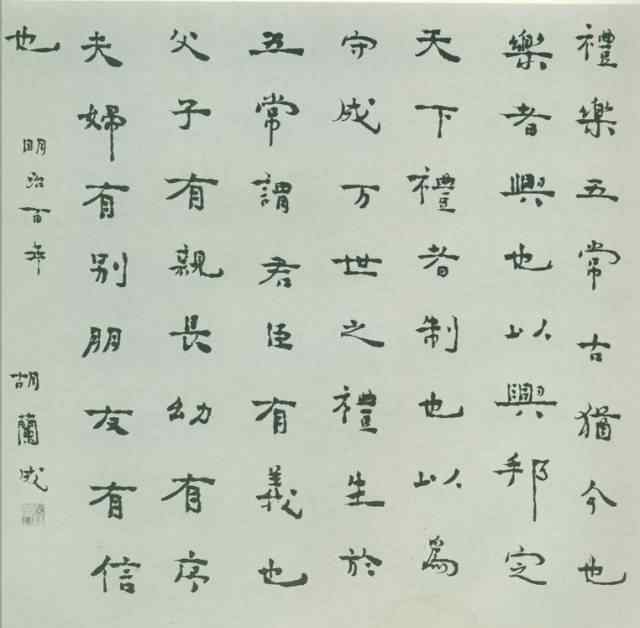 禮樂五常古猶今也
樂者興也以興邦定
天下禮者制也以為
守成万世之禮生於
五常謂君臣有義也
父子有親長幼有序
夫婦有別朋友有信
也
明治百年
胡蘭成